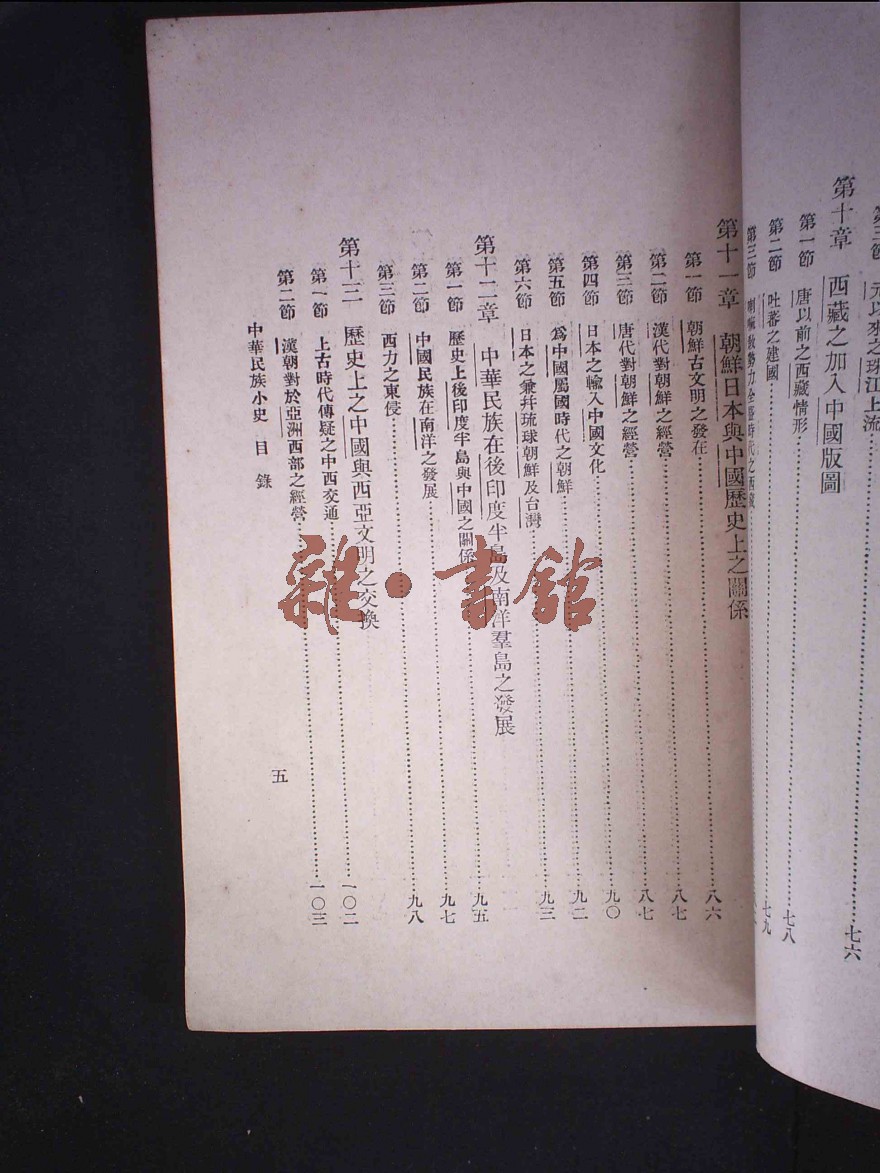 第三節 元以來之珠江上流……七六
第十章 西藏之加入中國版圖
第一節 唐以前之西藏情形……七八
第二節 吐蕃之建國……七九
第三節 喇嘛敎勢力全盛時代之西藏……
第十一章 朝鮮日本與中國歷史上之關係
第一節 朝鮮古文明之發在……八六
第二節 漢代對朝鮮之經營……八七
第三節 唐代對朝鮮之經營……八七
第四節 日本之輸入中國文化……九〇
第五節 爲中國屬國時代之朝鮮……九二
第六節 日本之兼幷琉球朝鮮及台灣……九三
第十二章 中華民族在後印度半島及南洋羣島之發展
第一節 歷史上後印度半島與中國之關係……九五
第二節 中國民族在南洋之發展……九七
第三節 西力之東侵……九八
第十三 歷史上之中國與西亞文明之交換
第一節 上古時代傳疑之中西交通……一〇二
第二節 漢朝對於亞洲西部之經營……一〇三
中華民族小史 目錄
五
雜·書館